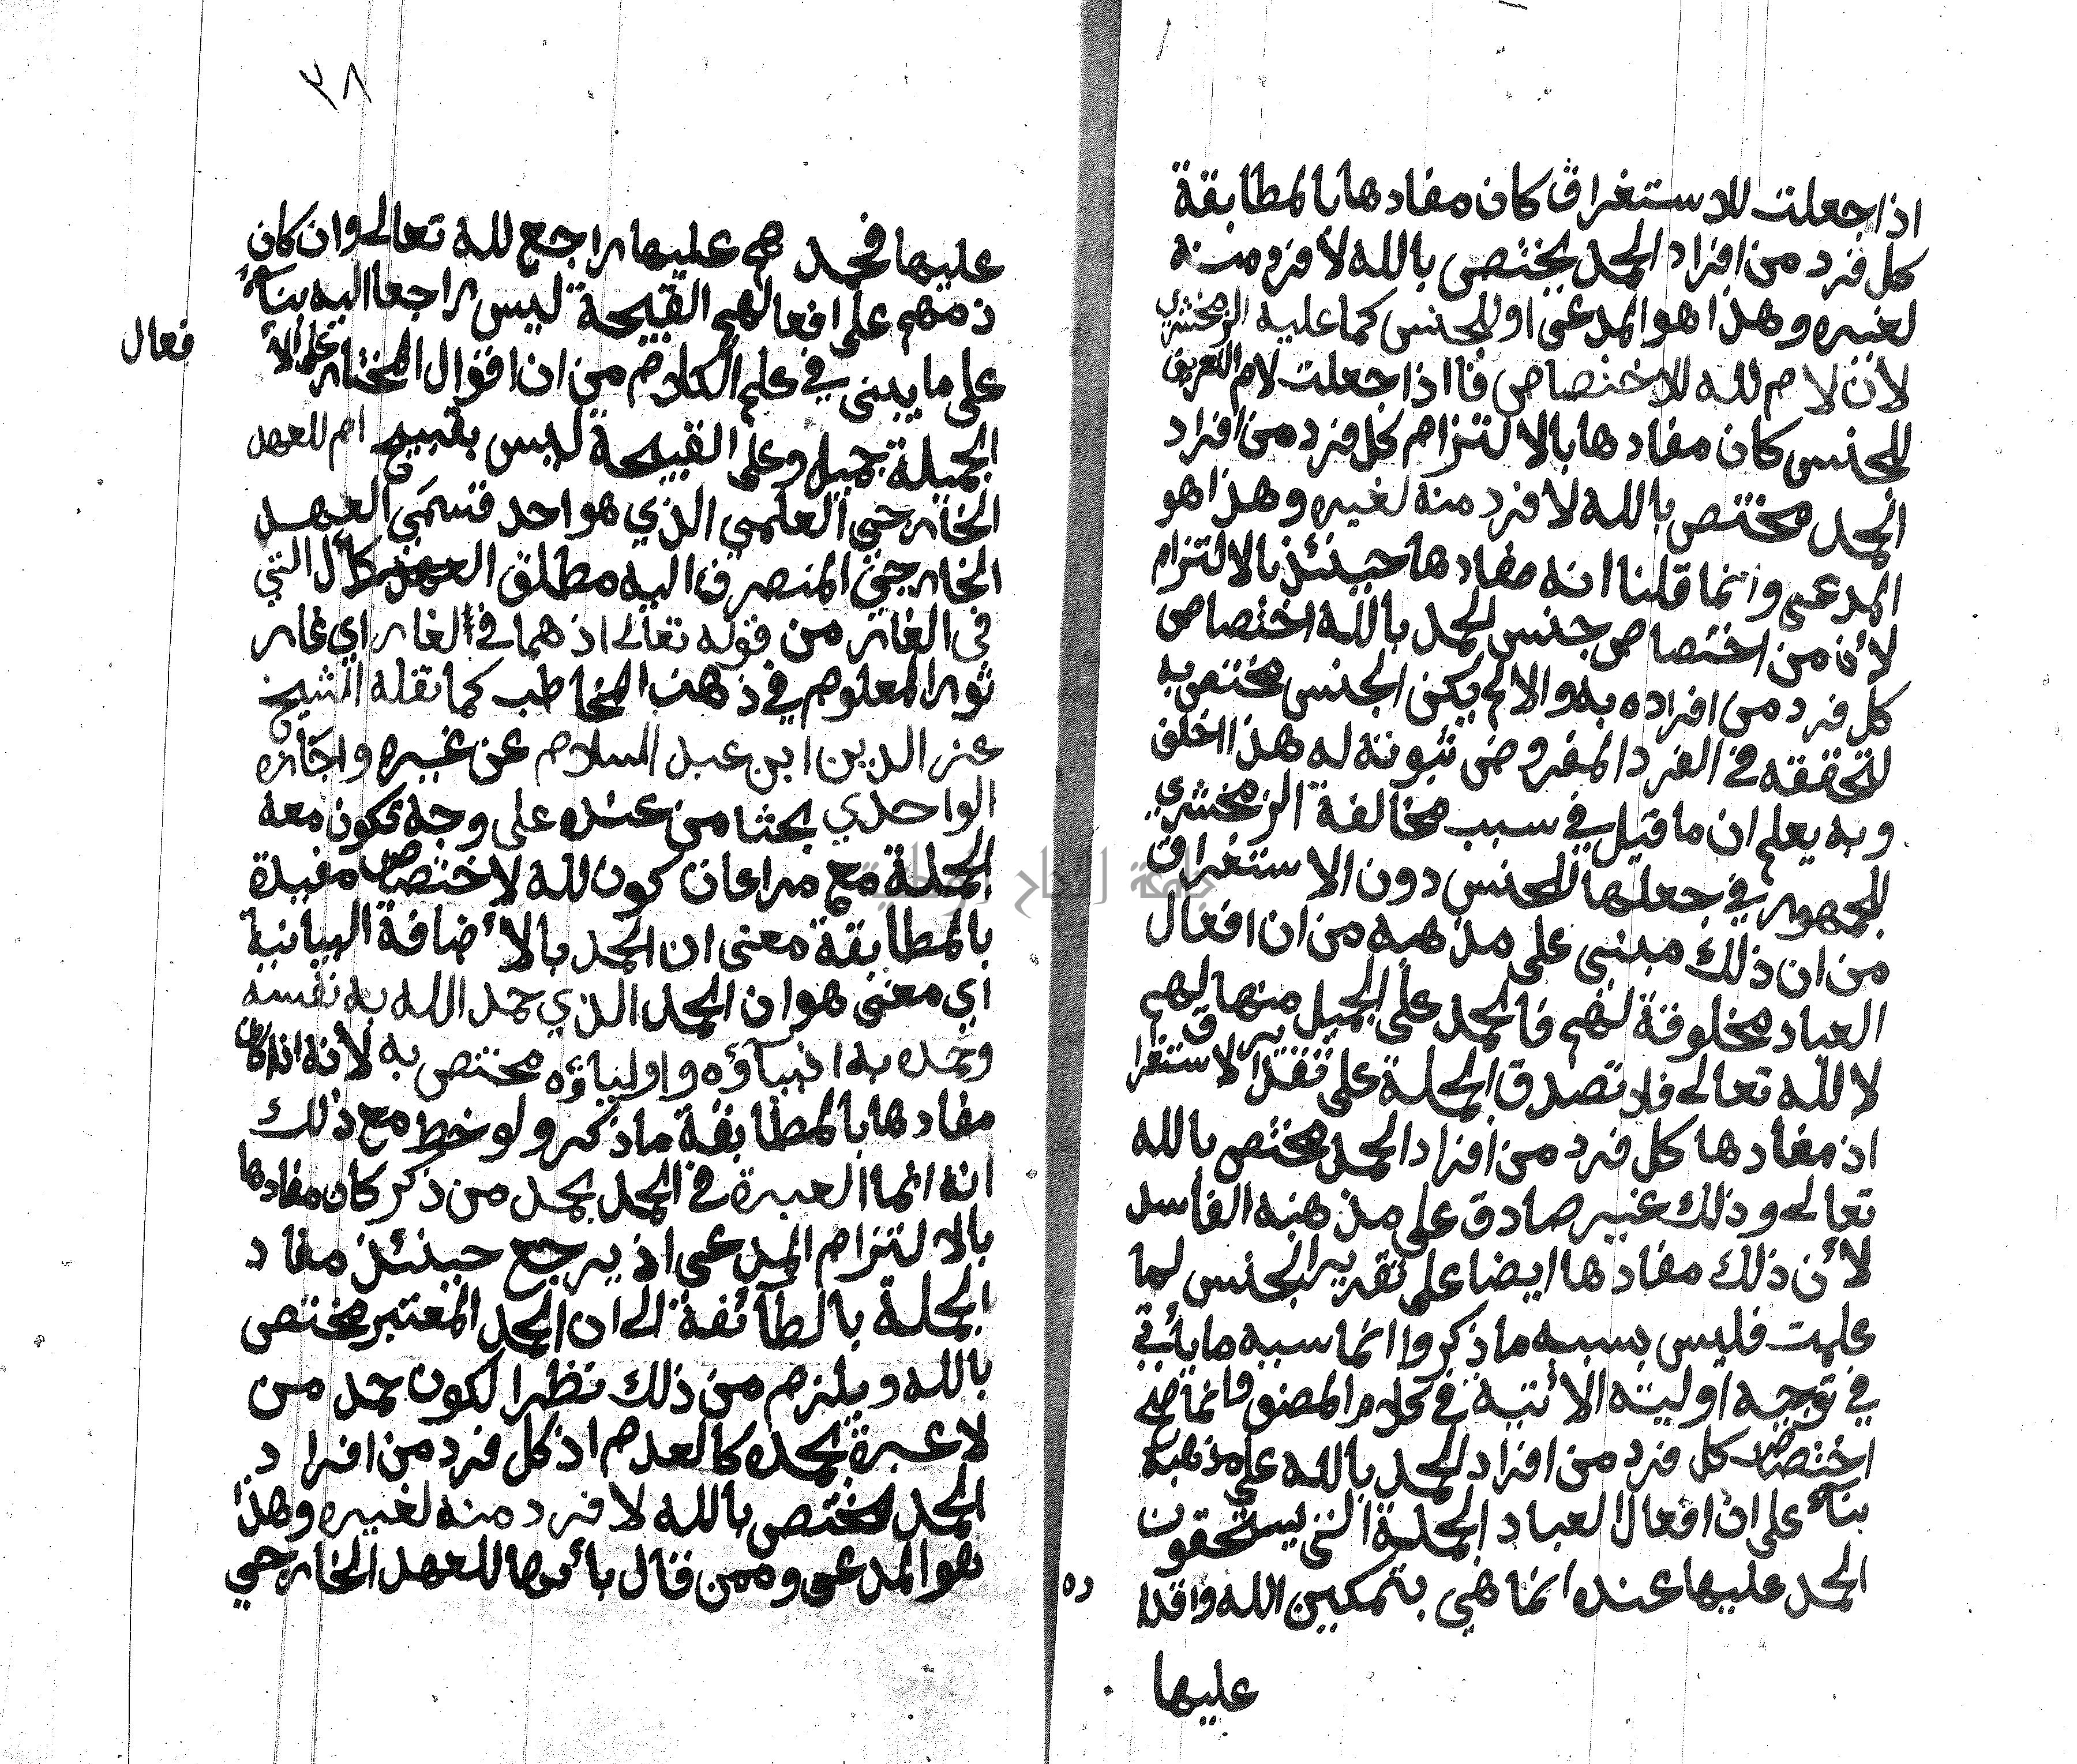 اذا جعلت للاستغراق كان مفادها بالمطابقة
كل فرد من افراد الحمد يختص بالله لا فرد منه
لغيره وهذا هو المدعى او للجنس كما عليه الزمخشري
لأن لام لله للاختصاص فاذا جعلت لام التعريف
للجنس كان مفادها بالالتزام كل فرد من افراد
الحمد مختص بالله لا فرد منه لغيره وهذا هو
المدعى وانما قلنا انه مفادها حينئذ بالالتزام
لأن من اختصاص جنس الحمد بالله اختصاص
كل فرد من افراده به والا لم يكن الجنس مختص به
لتحققه في الفرد المفروض ثبوته له هذا خلف
وبه يعلم ان ما قيل في سبب مخالفة الزمخشري
للجمهور في جعلها للجنس دون الاستغراق
من ان ذلك مبنى على مذهبه من ان افعال
العباد مخلوقة لهم فالحمد على الجميل منها لهم
لا لله تعالى فلا تصدق الجملة على تقدير الاستغراق
اذ مفادها كل فرد من افراد الحمد مختص بالله
تعالى وذلك غير صادق على مذهبه الفاسد
لأن ذلك مفادها ايضا على تقدير الجنس لما
علمت فليس بسببه ما ذكروا انما سببه ما يأتي
في توجيه اوليته الآتية في كلام المصنف وانما صح
اختصاص كل فرد من افراد الحمد بالله على مذهبه
بناء على ان افعال العباد الجملة التي يستحقون
الحمد عليها عنده انما هي بتمكين الله واقدا
ره
عليها
٣٨
عليها فحمدهم عليها راجع لله تعالى وان كان
ذمهم على افعالهم القبيحة ليس راجعا اليه بناء
على ما يبنى في علم الكلام من ان اقوال المختار على الأ
فعال
الجميلة جميل وعلى القبيحة ليس بقبيح ام للعهد
الخارجى العلمى الذي هو احد قسمي العهد
الخارجي المنصرف اليه مطلق العهد كأل التي
في الغار من قوله تعالى اذ هما في الغار اي غار
ثور المعلوم في ذهن المخاطب كما نقله الشيخ
عز الدين ابن عبد السلام عن غيره واجازه
الواحدي بحثا من عنده على وجه تكون معه
الجملة مع مراعات كون لله لاختصاص مفيدة
بالمطابقة معنى ان الحمد بالأضافة البيانية
اي معنى هو ان الحمد الذي حمد الله به نفسه
وحمده به انبياؤه واولياؤه مختص به لانه اذا كان
مفادها بالمطابقة ما ذكر ولوخط مع ذلك
انه انما العبرة في الحمد بحمد من ذكر كان مفادها
بالالتزام المدعى اذ يرجع حينئذ مفاد
الجملة بالطائفة الى ان الحمد المعتبر مختص
بالله ويلزم من ذلك نظرا لكون حمد من
لا عبرة بحمده كالعدم اذ كل فرد من افراد
الحمد مختص بالله لا فرد منه لغيره وهذا
هو المدعى وممن قال بأنها للعهد الخارجي